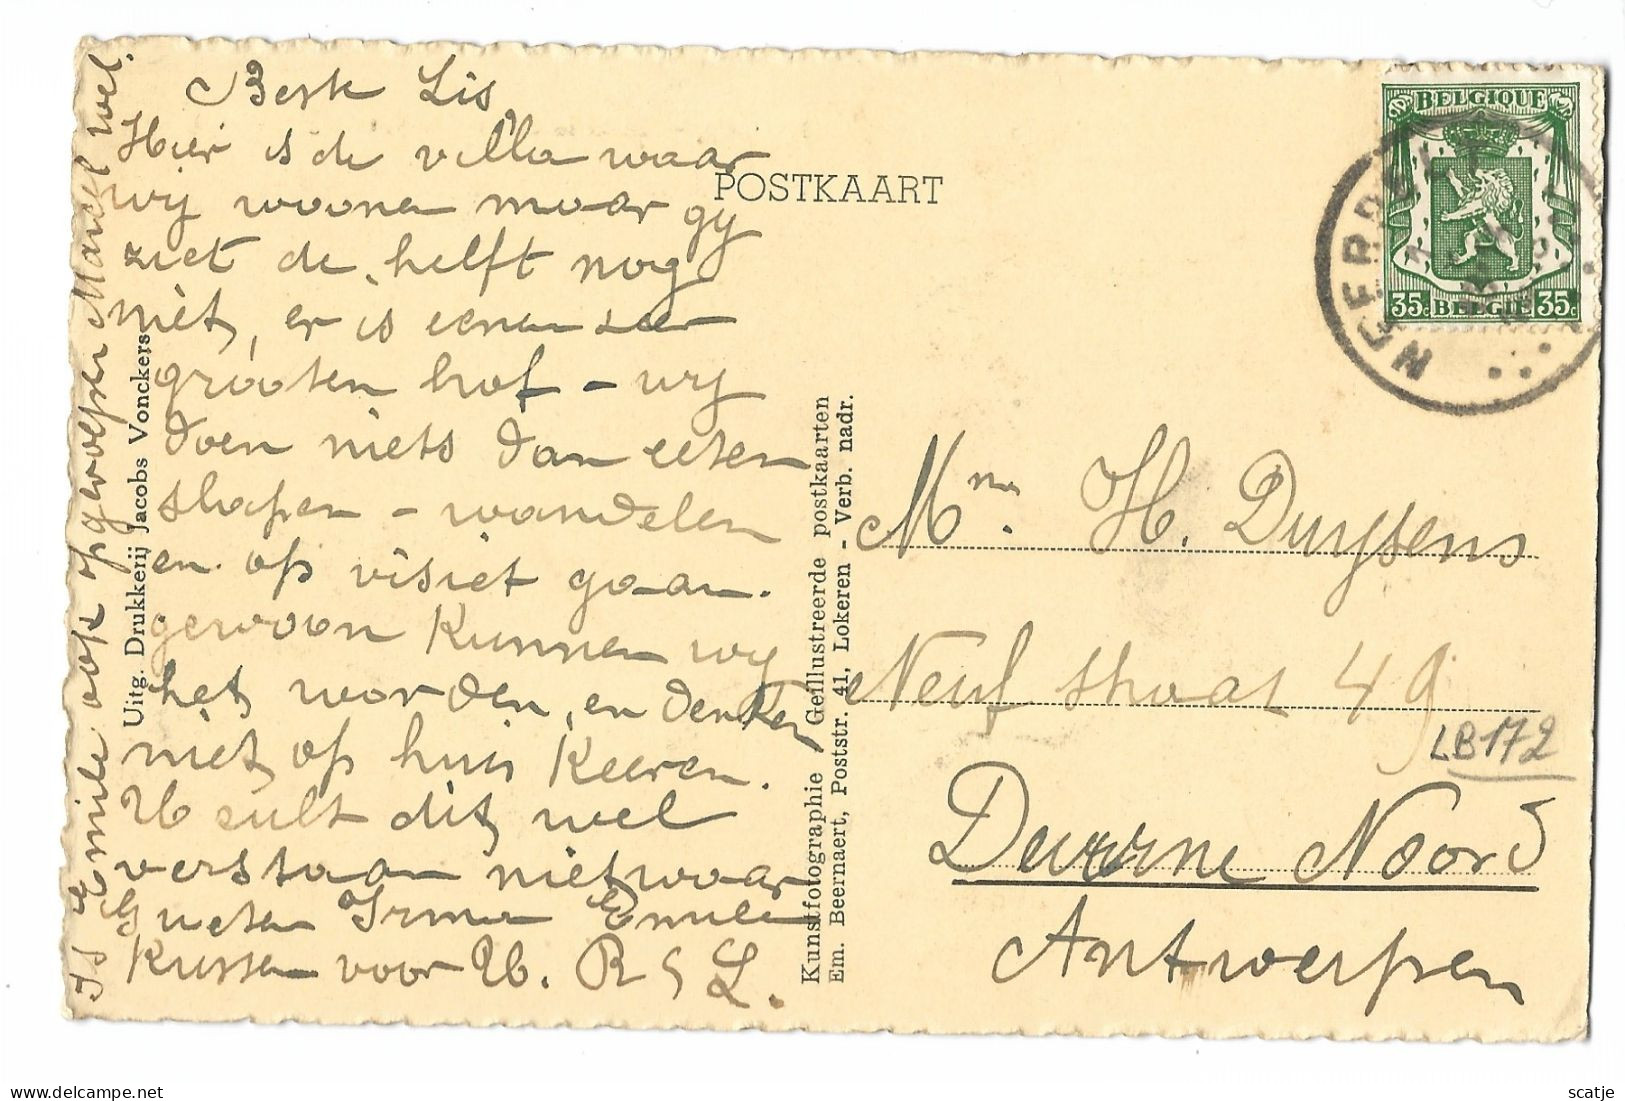 Beste Lis,
Hier is de villa waar
wij woonen maar gy
ziet de helft nog
niet, er is eenen zeer
grooten hof – wij
doen niets dan eeten
slapen – wandelen
en op visiet gaan.
gewoon kunnen wy
het worden, en denken
niet op huis keeren.
U zult dit wel
verstaan nietwaar
Gueten Irma Emile
Kussen voor U. R & L.
Is Emile ook opgeroepen Marcel wel.
Uitg. Drukkerij Jacobs Vonckers
POSTKAART
Kunstfotographie Geïllustreerde postkaarten
Em. Beernaert, Poststr. 41, Lokeren - Verb. nadr.
BELGIQUE
35c BELGIE 35c
NEERPELT
Mme H. Duysens
Neufstraat 49
LB172
Deurne Noord
Antwerpen
scatje